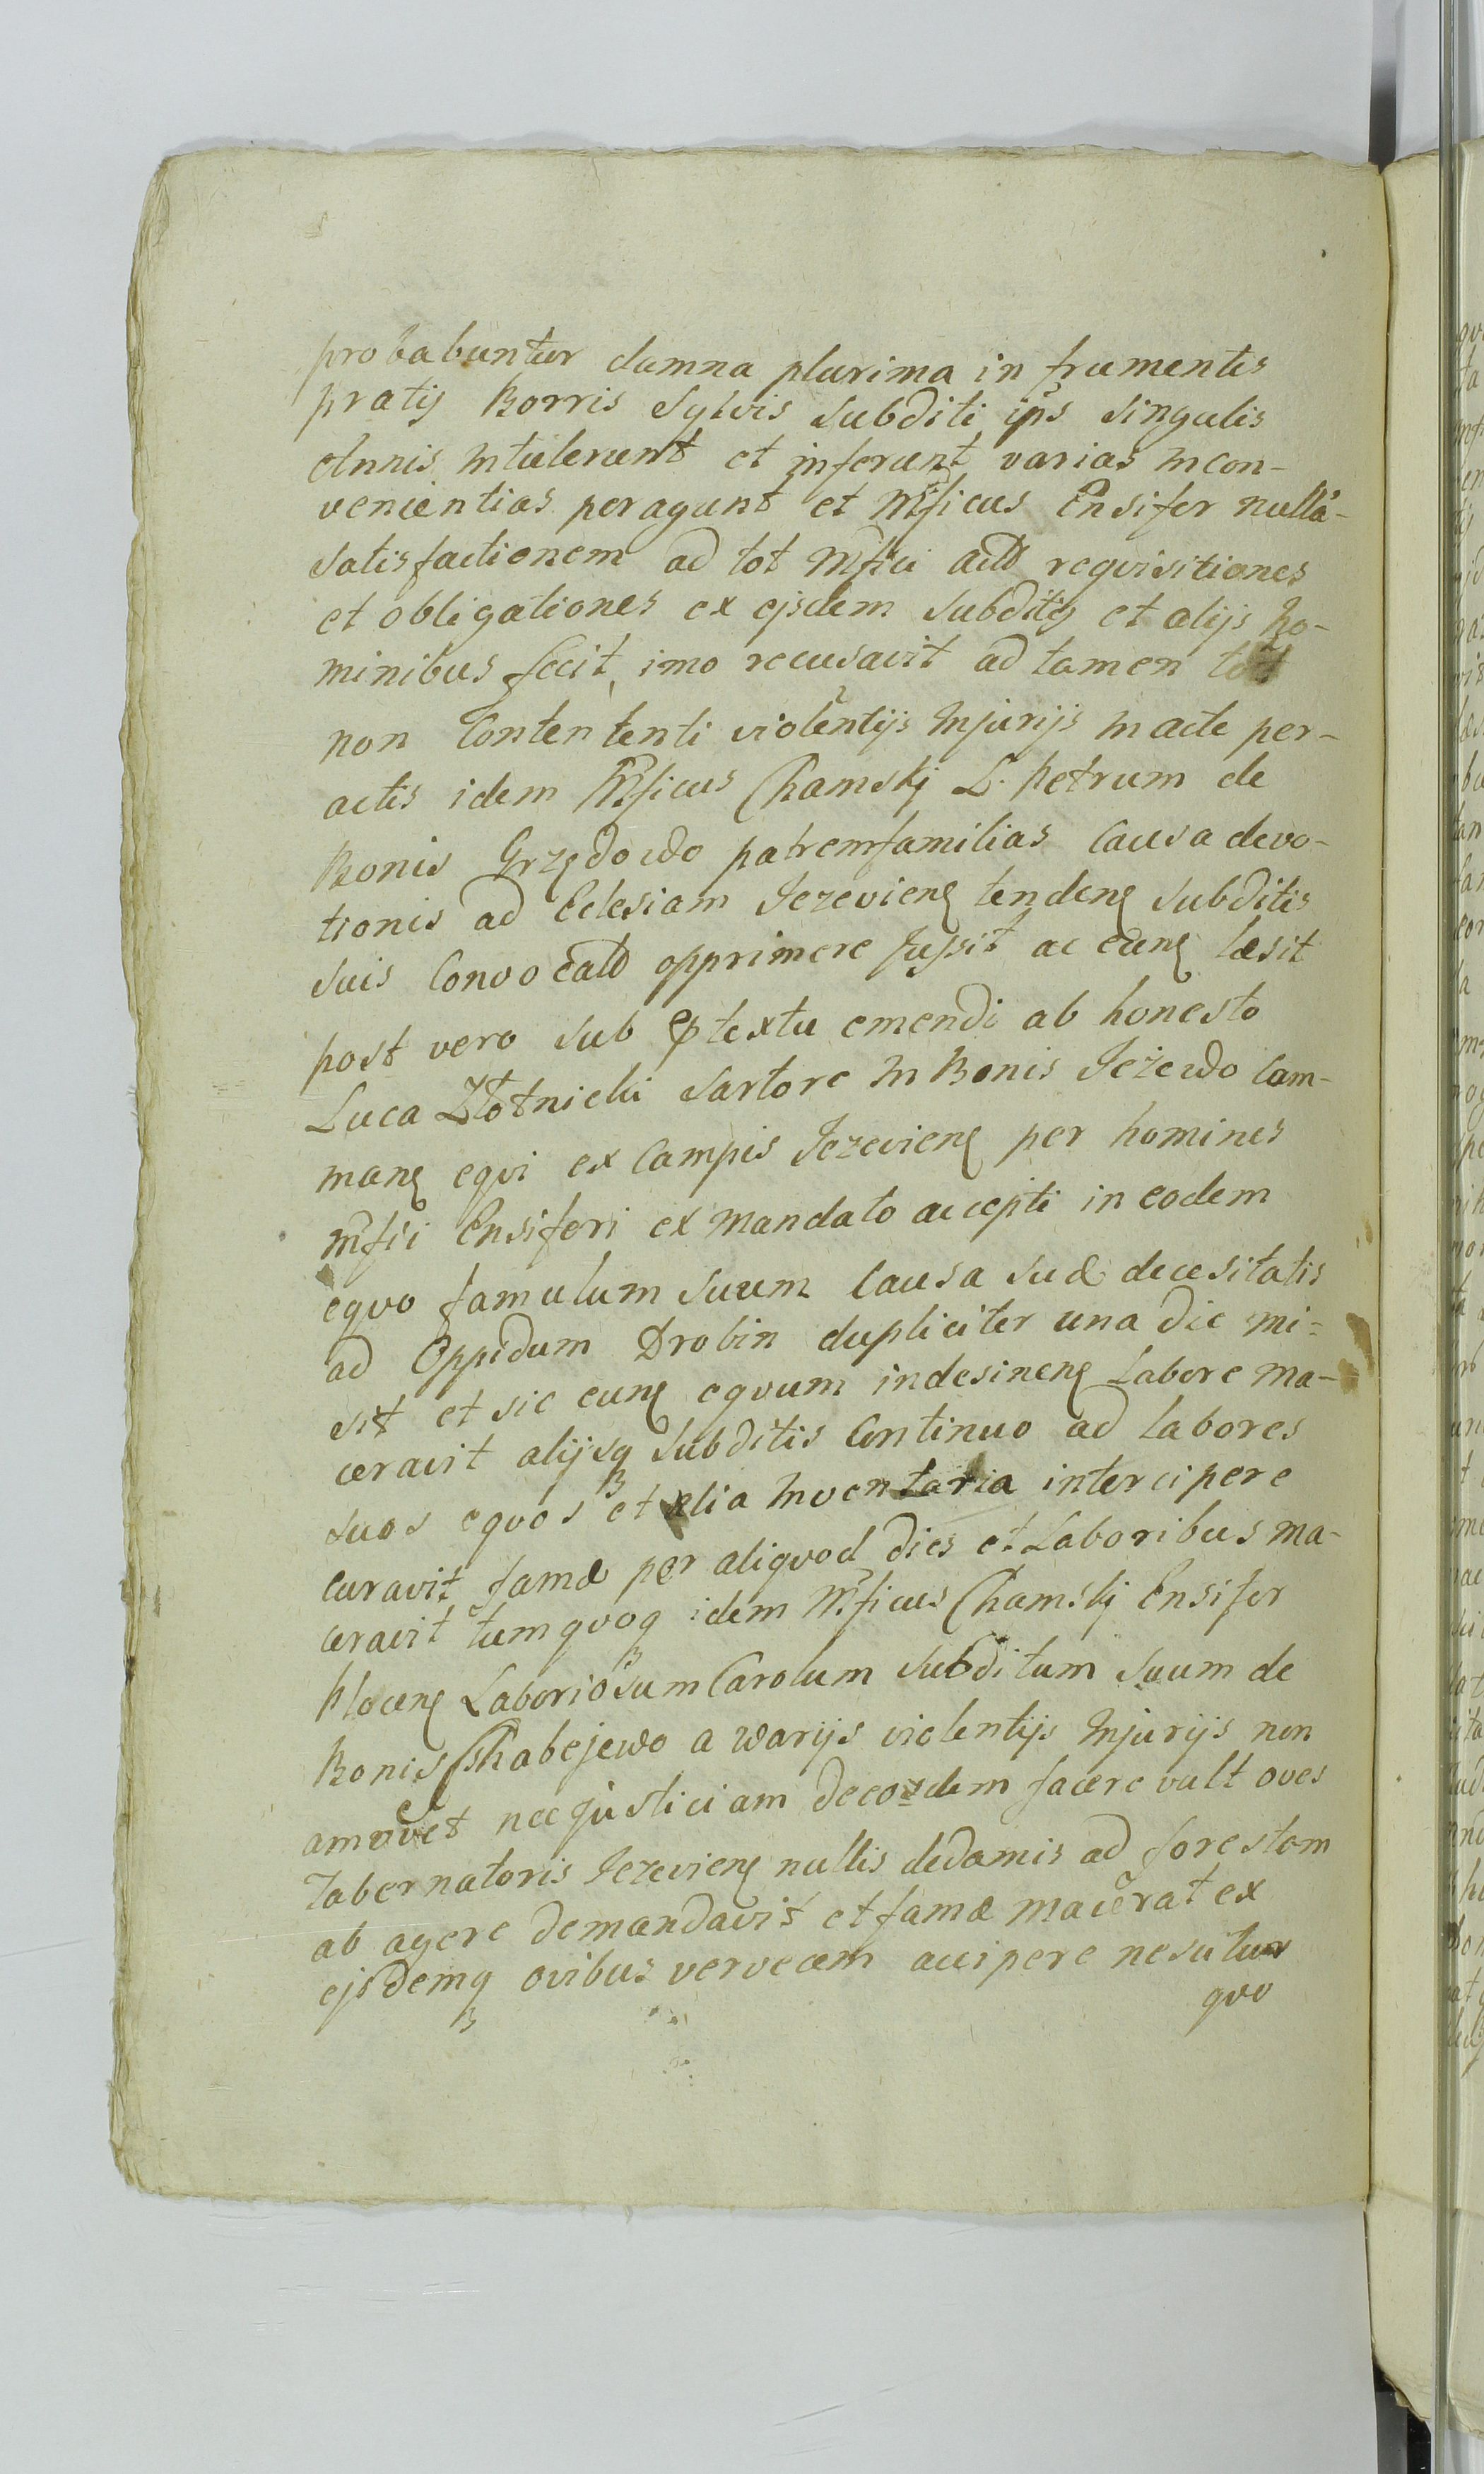 probabuntur damna plurima in frumentis
pratis Borris Sylvis Subditi ips Singulis
Annis intulerunt et inferunt varias incon-
venientias peragunt et Mficus Ensifer nullā-
Satisfactionem ad tot Mfici requisitiones
et obligationes ex ejsdem Subditis et alijs ho-
minibus fecit, imo recusavit ad tamen tot
non Contententi violentijs Injurijs in acte per-
actis idem Mficus Chamskj L. Petrum de
Bonis Grzędowo patremfamilias Causa devo-
tionis ad Eclesiam Jezeviens tendens Subditis
Suis Convocatis opprimere Jussit ac eung læsit
post vero Sub ptextu emendi ab honesto
Luca Złotnicki Sartore in Bonis Jeżewo Cam-
mang eqvi ex Campis Jezeviens per homines
Mfici Ensiferi ex mandato accepti in eodem
eqvo famulum Suum Causa Suæ decesitatis
ad Oppidum Drobin dupliciter una die mi-
sit et sic eung eqvum indesinens Labore ma-
ceravit alijsq Subditis Continuo ad labores
Suos eqvos et alia Inventaria intercipere
curavit, famæ per aliqvod dies et Laboribus ma-
ceravit tumqvoq idem Mficus Chamskj Ensifer
Plocens Laboriosum Carolum Subditum Suum de
Bonis Skabejewo a warijs violentijs Injurijs non
amovet necqjusticiam de eodem facere vult oves
Tabernatoris Jezeviens nullis dedamis ad forestam
ab agere demandavit et famæ macerat ex
ejsdemq ovibus vervecem accipere nescitur
qvo